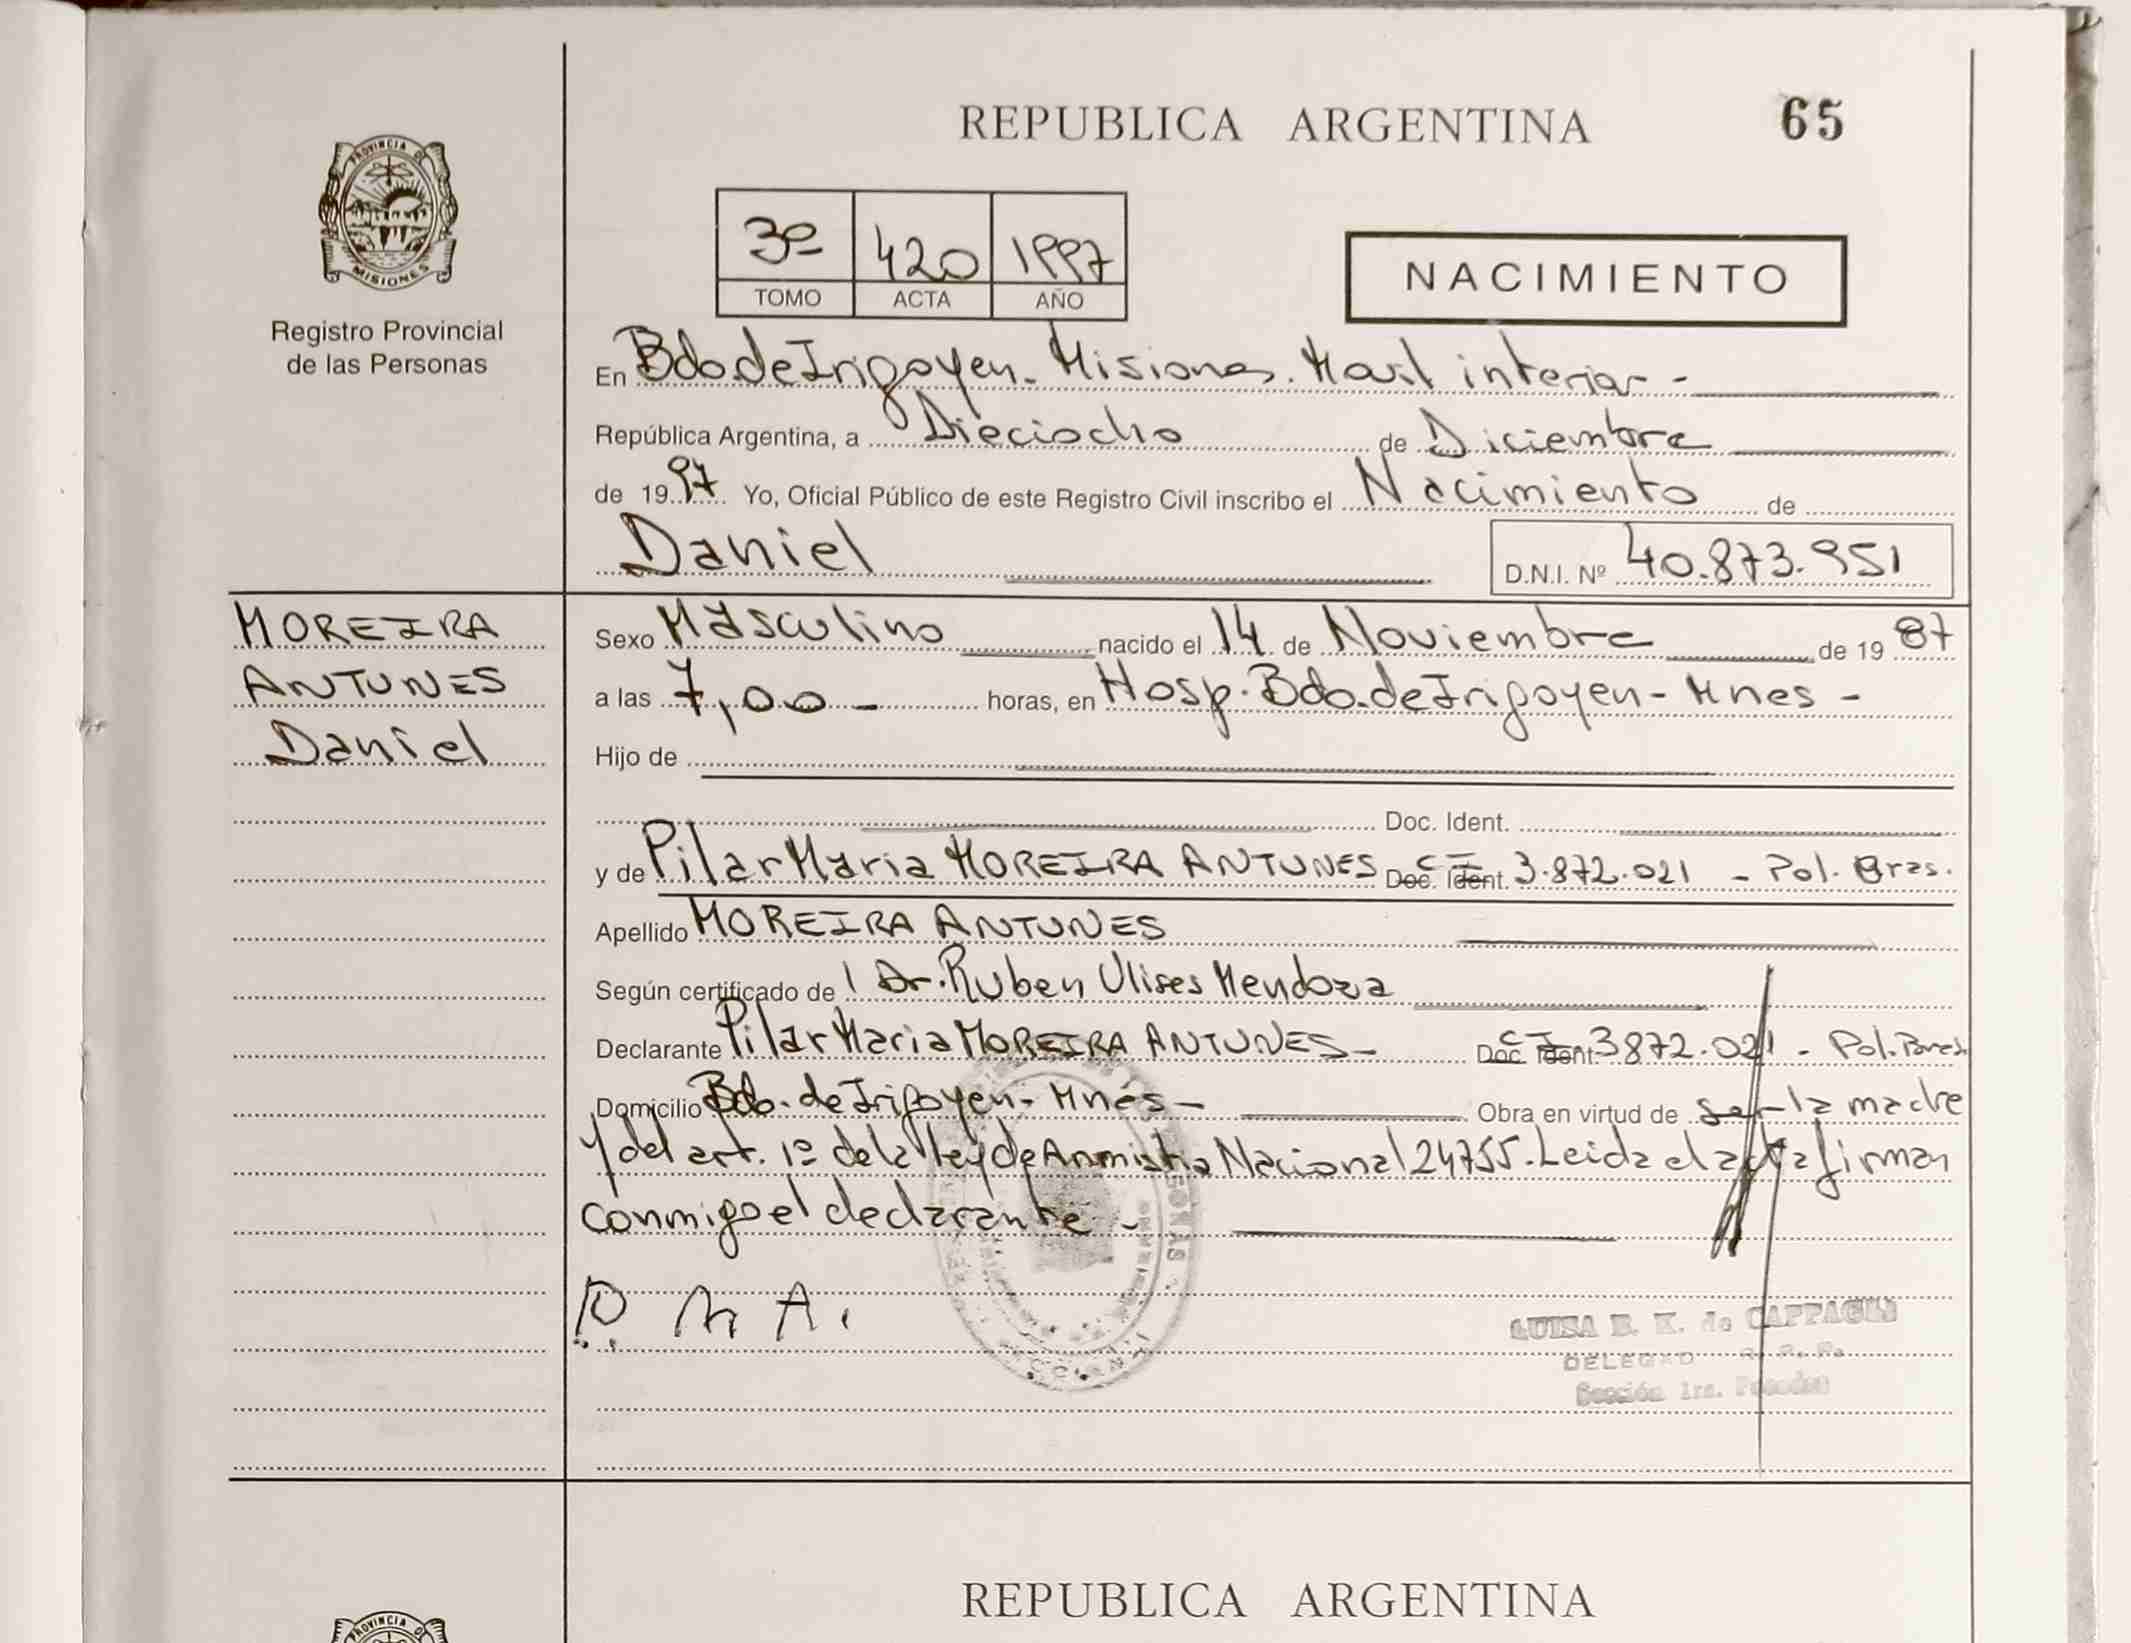 REPUBLICA ARGENTINA
65
PROVINCIA DE
MISIONES
Registro Provincial
de las Personas
3º 420 1997
TOMO ACTA AÑO
NACIMIENTO
En Bdo. de Irigoyen. Misiones. interior -
República Argentina, a Dieciocho de Diciembre
de 1997 Yo, Oficial Público de este Registro Civil inscribo el Nacimiento de
Daniel D.N.I. Nº 40.873.951
MOREIRA
ANTUNES
Daniel
Sexo Masculino nacido el 14 de Noviembre de 1987
a las 7,00 - horas, en Hosp. Bdo. de Irigoyen - Mnes -
Hijo de
Doc. Ident.
y de Pilar Maria MOREIRA ANTUNES Doc. Ident. C I 3.872.021 - Pol. Bras.
Apellido MOREIRA ANTUNES
Según certificado de Dr. Ruben Ulises Mendoza
Declarante Pilar Maria MOREIRA ANTUNES - Doc. Ident. C I 3872.021 - Pol.
Domicilio Bdo. de Irigoyen - Mnes - Obra en virtud de ser la madre
y del art. 1º de la ley de Anmistia Nacional 24755. Leida el acta firman
conmigo el declarante -
P. M A.
LUISA E. K. de
DELEGAD R. P. P.
Sección 1ra. Posadas
REPUBLICA ARGENTINA
PROVINCIA DE